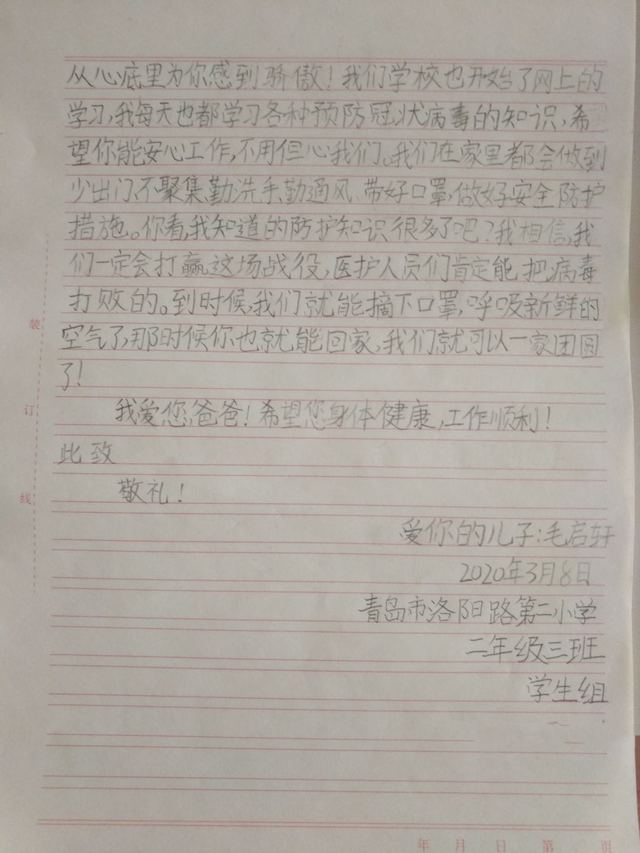 从心底里为你感到骄傲！我们学校也开始了网上的
学习，我每天也都学习各种预防冠状病毒的知识，希
望你能安心工作，不用但心我们。我们在家里都会做到
少出门，不聚集，勤洗手，勤通风，带好口罩，做好安全防护
措施。你看，我知道的防护知识很多了吧？我相信，我
们一定会打赢这场战役，医护人员们肯定能把病毒
打败的。到时候，我们就能摘下口罩，呼吸新鲜的
空气了，那时候你也就能回家，我们就可以一家团圆
了！
我爱您，爸爸！希望您身体健康，工作顺利！
此致
敬礼！
爱你的儿子：毛启轩
2020年3月8日
青岛市洛阳路第二小学
二年级三班
学生组
装
订
线
年 月 日 第 页